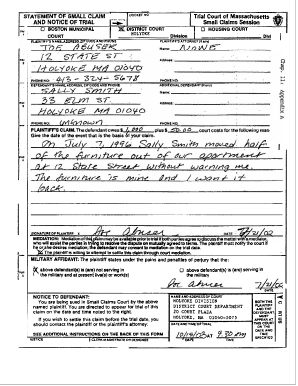 STATEMENT OF SMALL CLAIM
AND NOTICE OF TRIAL
DOCKET NO.
Trial Court of Massachusetts
Small Claims Session
BOSTON MUNICIPAL COURT
DISTRICT COURT
HOLYOKE Division
HOUSING COURT
PLAINTIFF'S NAME, ADDRESS, ZIP CODE AND PHONE
JOE ABUSER
12 STATE ST
HOLYOKE MA 01040
PHONE NO. 413-324-5678
PLAINTIFF'S ATTORNEY
Name: NONE
Address:
PHONE NO.
DEFENDANT'S NAME, ADDRESS, ZIP CODE AND PHONE
SALLY SMITH
33 ELM ST
HOLYOKE MA 01040
PHONE NO.
ADDITIONAL DEFENDANT
Name:
Address:
PHONE NO.
PLAINTIFF'S CLAIM. The defendant owes $ plus $ 50.00 court costs for the following reasons
Give the date of the event that is the basis of your claim.
On July 7, 1996 Sally Smith moved half
of the furniture out of our apartment
at 12 State Street without warning me.
The furniture is mine and I want it
back.
SIGNATURE OF PLAINTIFF X Joe Abuser
DATE
MEDIATION:
The plaintiff is willing to attempt to settle this claim through court mediation.
MILITARY AFFIDAVIT: The plaintiff states under the pains and penalties of perjury that the:
above defendant(s) is (are) not serving in
the military and at present live(s) or work(s)
above defendant(s) is (are) serving in
the military
Joe Abuser
NOTICE TO DEFENDANT:
You are being sued in Small Claims Court by the above
named plaintiff. You are directed to appear for trial of this
claim on the date and time noted to the right.
If you wish to settle this claim before the trial date, you
should contact the plaintiff or the plaintiff's attorney.
SEE ADDITIONAL INSTRUCTIONS ON THE BACK OF THIS FORM
NAME AND ADDRESS OF COURT
HOLYOKE DIVISION
DISTRICT COURT DEPARTMENT
20 COURT PLAZA
HOLYOKE, MA 01040-5075
DATE AND TIME OF TRIAL
9:30 AM
BOTH THE
PLAINTIFF
AND THE
DEFENDANT
MUST
APPEAR AT
THIS COURT
ON THE
DATE AND
TIME
SPECIFIED
Appendix A